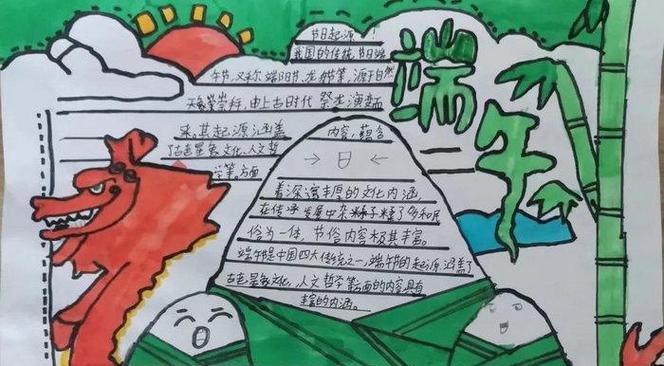 节日起源!
我国的传统节日端
午节,又称端阳节,龙舟节等,源于自然
天象崇拜,由上古时代祭龙演变而
来,其起源涵盖
了古老星象文化,人文哲
学等方面
内容,蕴含
→日←
着深邃丰厚的文化内涵,
在传承发展中杂糅了多种民
俗为一体,节俗内容极其丰富。
端午节是中国四大传统之一,端午节的起源,涵盖了
古老星象文化,人文哲学等方面的内容具有
的内涵。
端午